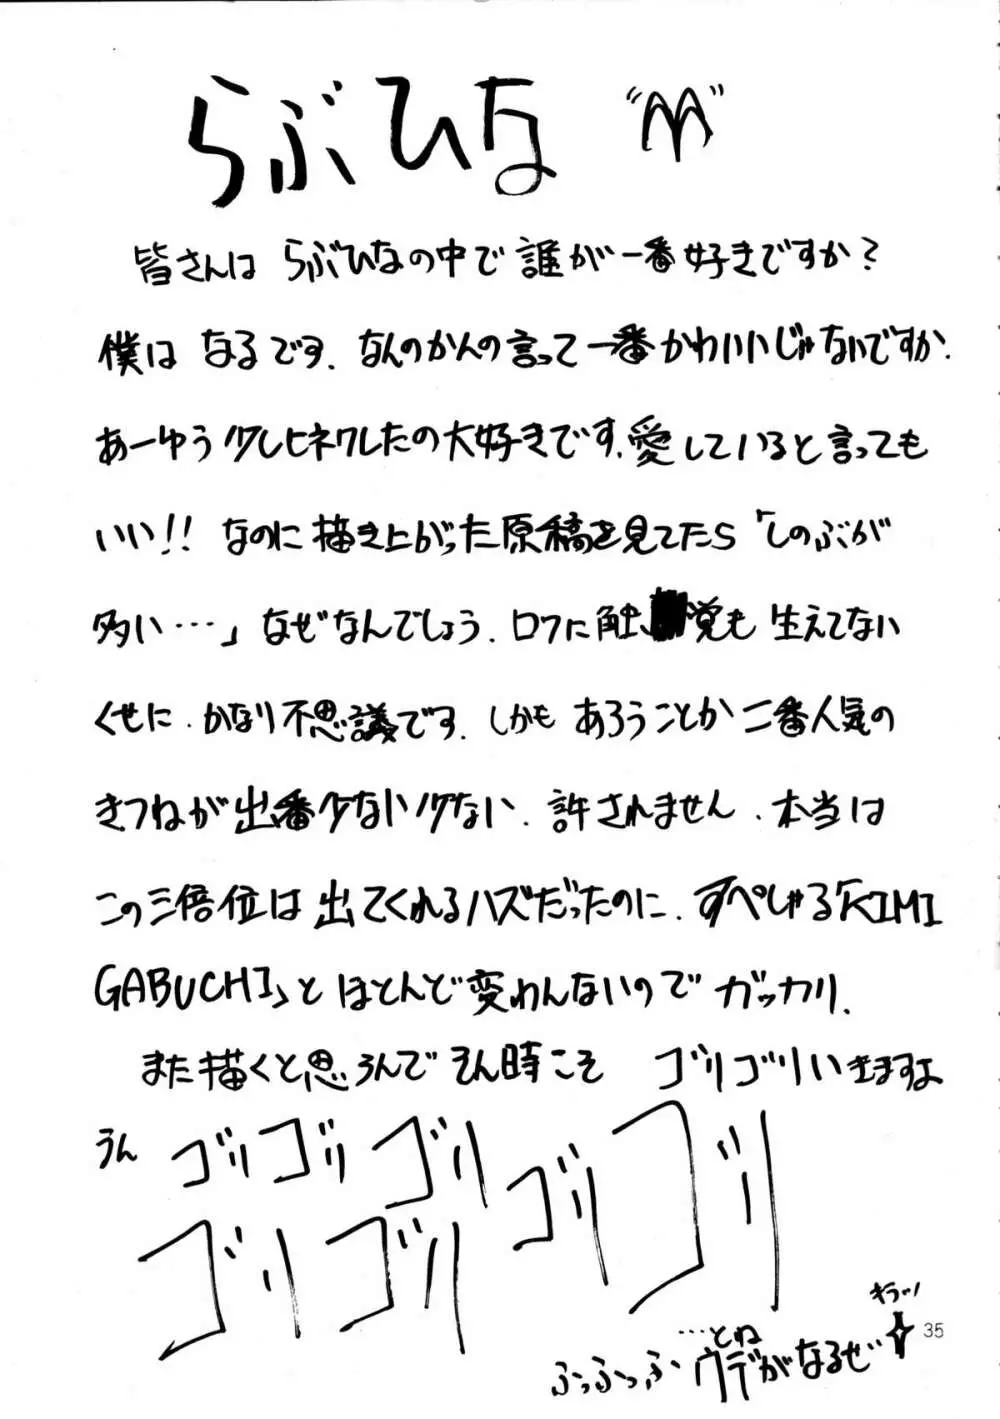 らぶひな
皆さんは らぶひなの中で 誰が一番好きですか?
僕は なるです. なんのかんの言って一番かわいいじゃないですか.
あーゆう少しヒネクレたの大好きです. 愛していると言っても
いい!! なのに描き上がった原稿を見てたら「しのぶが
多い…」なぜなんでしょう. ロクに触覚も 生えてない
くせに. かなり不思議です. しかも あろうことか 二番人気の
きつねが出番少ない少ない. 許されません. 本当は
この三倍位は 出てくれるハズだったのに. すぺしゃる「KIMI
GABUCHI」と ほとんど変わんないので ガッカリ.
また描くと思うんで そん時こそ ゴリゴリいきますよ
うん ゴリゴリゴリゴリゴリ
ゴリゴリ
キラッ
…とね
ふっふっふ ウデがなるぜ
35